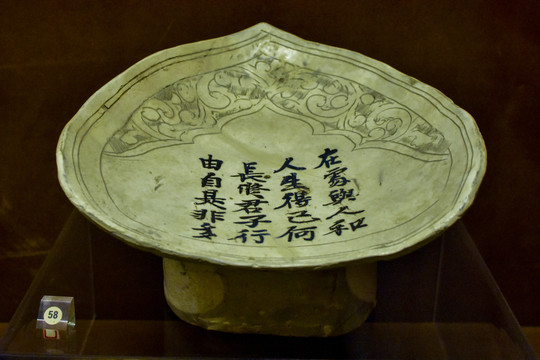 在處與人和
人生得己何
長修君子行
由自是非多
58